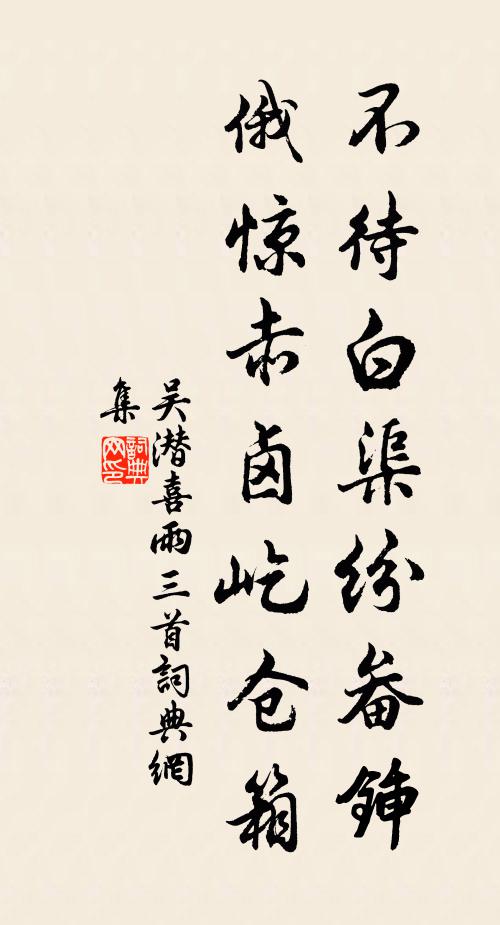 不待白渠纷畚锸
俄惊赤卤屹仓箱
吴潜喜雨三首詞典網
集
詞典網印